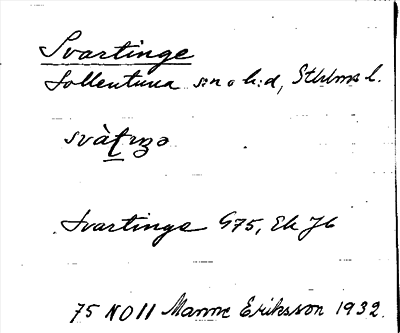 Svartinge
Sollentuna s:n o h:d, Sthlms l.
svàʈɩŋə
Svartinge G75, Ek Jb
75 NO 11 Manne Eriksson 1932.